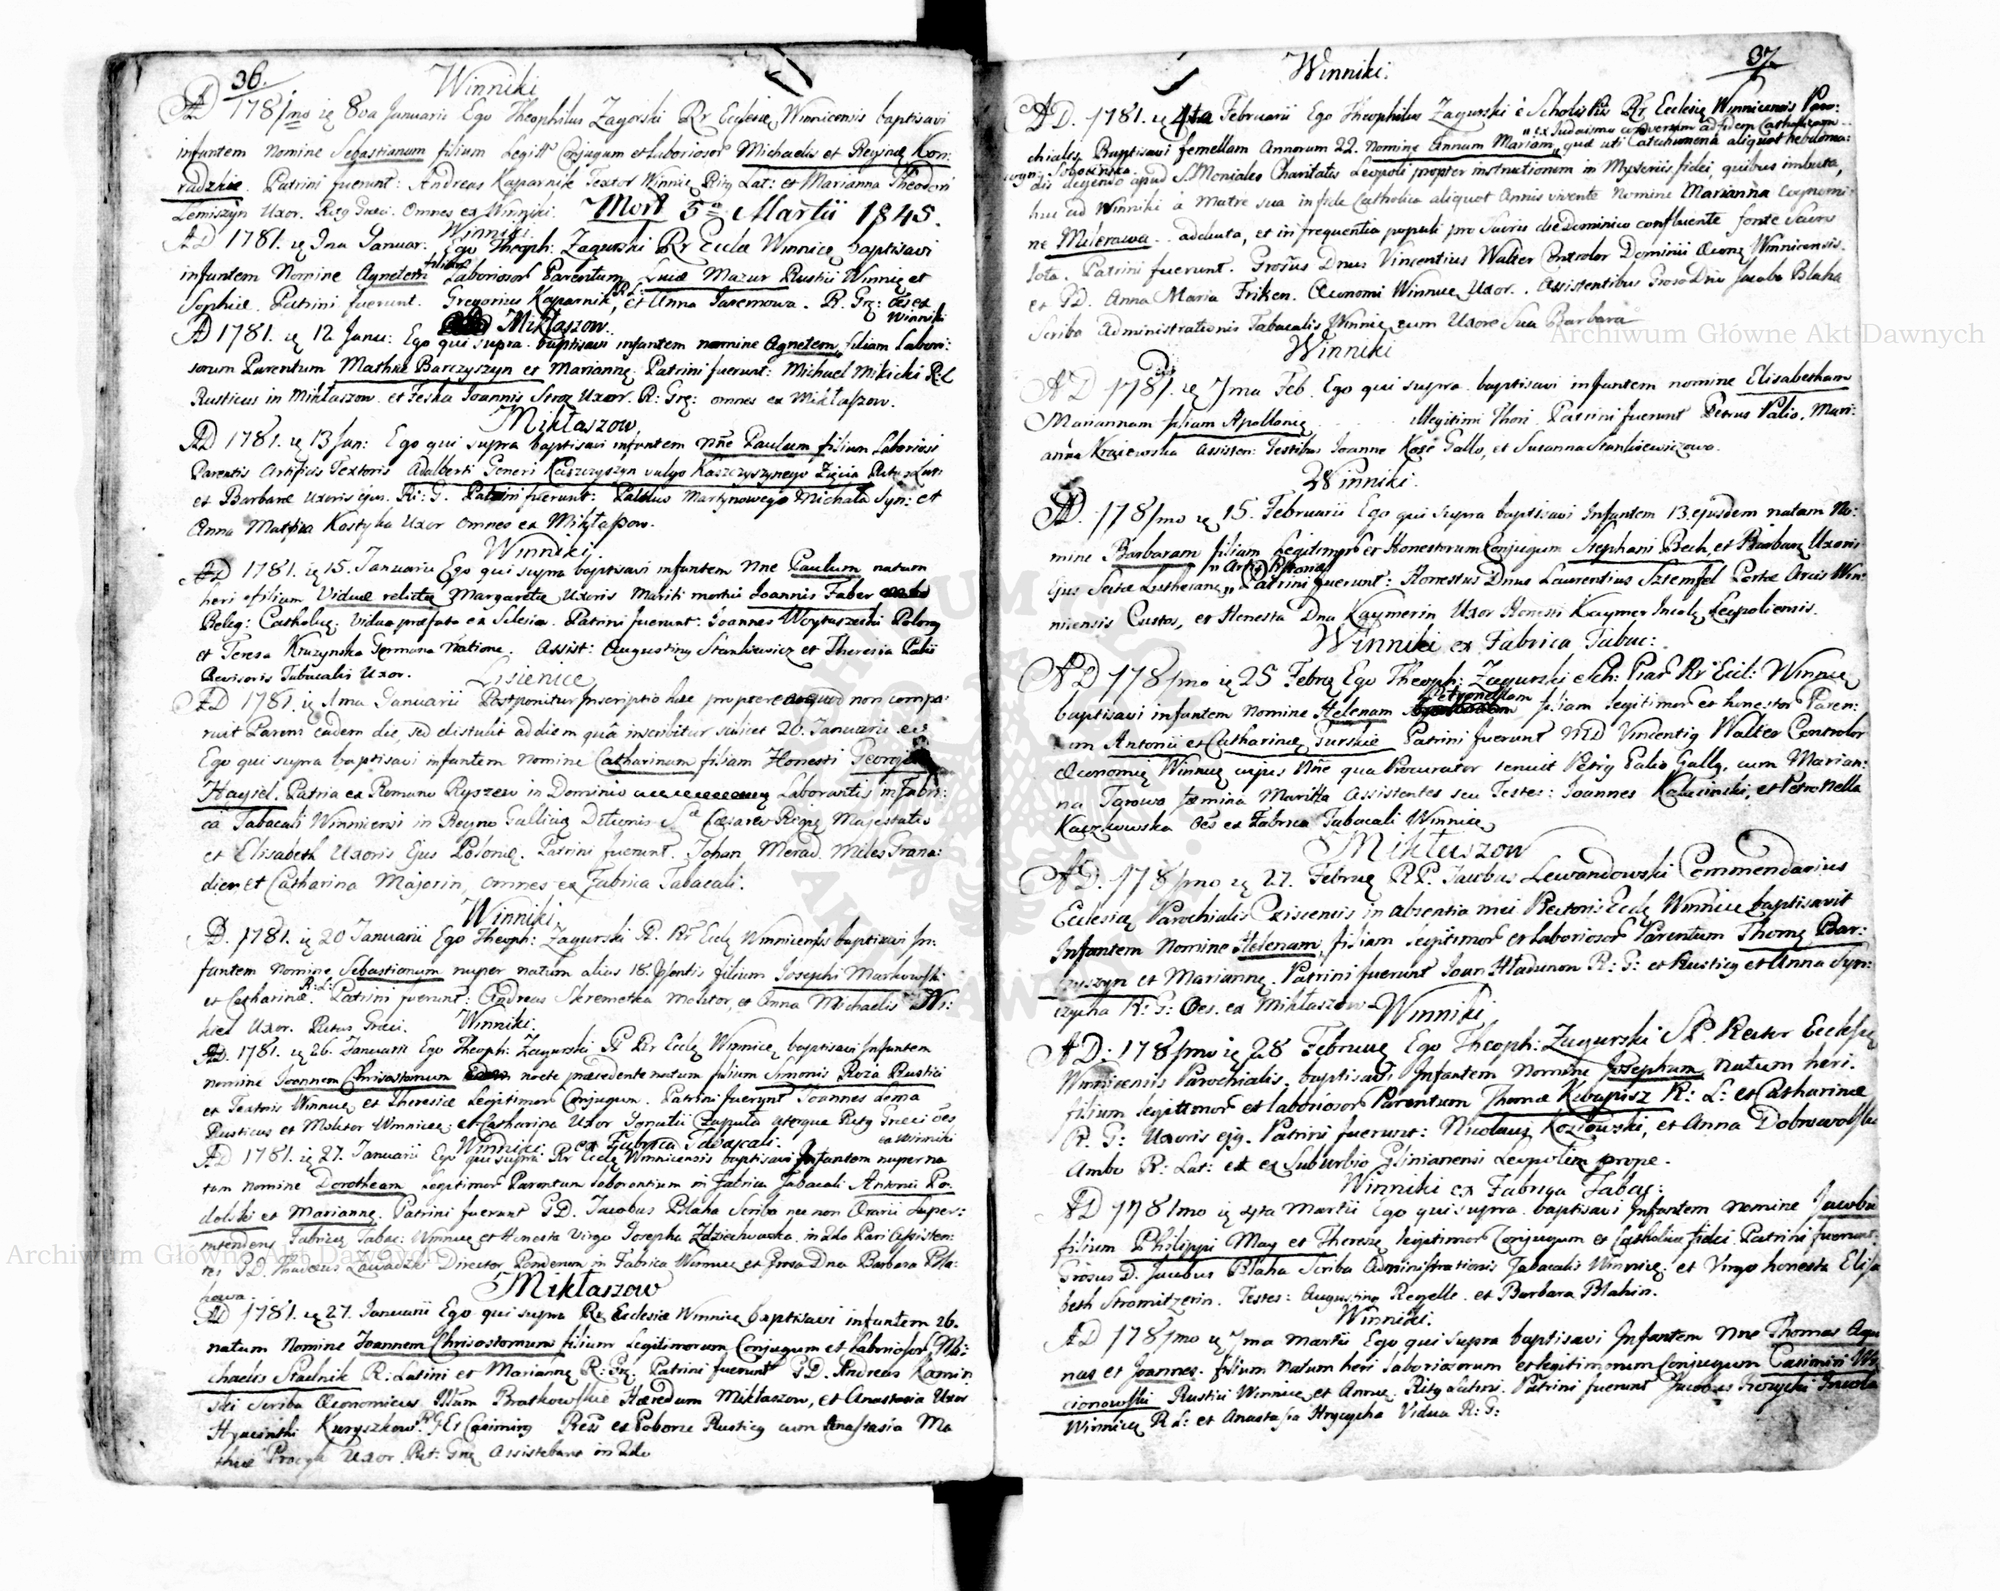 36.
Winniki
AD 1781mo ię 8va Januarii Ego Theophilus Zagorski Rr Ecclesię Winnicensis baptisavi
infantem nomine Sebastianum filium Legitt Conjugum et laboriosor Michaelis et Reginæ Kon:
radzkie. Patrini fuerunt: Andreas Kaparnik Textor Winnic. Ritę Lat: et Marianna Theodori
Lemiszyn Uxor. Ritę Græci. Omnes ex Winniki. Mort 5ta Martii 1845.
Winniki.
AD 1781. ię 9na Januar. Ego Theoph: Zagurski Rr Eccle Winnicę baptisavi
infantem Nomine Agnetem filiam Laboriosor Parentum Lucæ Mazur Rustici Winnię et
Sophiæ. Patrini fuerunt. Gregorius Kaparnik R.L:, et Anna Jaremowa. R. Grę: oēs ex
Winniki
Mikłaszow.
AD 1781. ię 12 Janu: Ego qui supra baptisavi infantem nomine Agnetem, filiam Labori:
sorum Parentum Mathiæ Barczyszyn et Mariannę. Patrini fuerunt: Michael Mikicki R: L
Rusticus in Mikłaszow. et Feska Joannis Stroz Uxor. R: Grę: omnes ex Mikłaszow.
Mikłaszow.
AD 1781. ię 13 Jan: Ego qui supra baptisavi infantem Nñe Paulum filium Laboriosi
Parentis Artificis Textoris Adalberti Generi Kaszczyszyn vulgo Kaszczyszynego Zięcia Ritus Lat:
et Barbaræ Uxoris ejus. Ri: G. Patrini fuerunt: Pawlus Martynowego Michała Syn: et
Anna Mathia Kostyka Uxor omnes ex Mikłaszow.
Winniki.
AD 1781. ię 15. Januarii Ego qui supra baptisavi infantem Nne Paulum natum
heri filium Viduæ relictæ Margaretæ Uxoris Mariti mortui Joannis Faber
Belig: Catholię: Vidua præfata ex Silesia. Patrini fuerunt. Joannes Woytaszecki Polony
et Teresa Kruzynska Germana Natione. Assist: Augustiny Stankiewicz et Theresia Palii
Revisoris Tabacalis Uxor.
Lisienice
AD 1781. ię 1ma Januarii Postponitur Inscriptio huc propterea quod non compa:
ruit Parens eadem die, sed distulit ad diem quâ inscribitur scilicet 20. Januarii
Ego qui supra baptisavi infantem nomine Catharinam filiam Honesti Georgii
Haysel. Patria ex Romano Ryszew in Dominio Laborantis in Fabri:
ca Tabacali Winniensi in Regno Galliciæ Ditionis Sæ Cæsareo Regię Majestatis
et Elisabeth Uxoris Ejus Polonię. Patrini fuerunt. Johan Merad. Miles Grana:
dier et Catharina Majorin, omnes ex Fabrica Tabacali.
Winniki.
D. 1781. ię 20 Januarii Ego Theoph: Zagurski R. Rr Eccle Winnicensis baptisavi In:
fantem nomine Sebastianum nuper natum alias 18. Ipsentis filium Josephi Markowski
et Catharinæ. R: L: Patrini fuerunt: Andreas Skremetka Molitor, et Anna Michaelis
Uxor. Ritus Græci. Winniki.
AD. 1781. ię 26. Januarii Ego Theoph: Zagurski Rr Eccle Winnicę baptisavi Infantem
nomine Joannem Chrisostomum nocte præcedente natum filium Simonis Roza Rustici
et Textoris Winnicę et Theresiæ Legitimor Conjugum. Patrini fuerunt Joannes Loma
Rusticus et Molitor Winnicę et Catharina Uxor Ignatii Czaputa uterque Ritę Græci oēs
ex Winniki
Winniki ex Fabrica Tabacali.
AD 1781. ię 27. Januarii Ego qui supra Rr Eccle Winnicensis baptisavi Infantem nuper na
tam nomine Dorotheam Legitimor Parentum laborantium in Fabrica Tabacali Antonii Po:
dolski et Mariannę. Patrini fuerunt G.D. Jacobus Blaha Scriba nec non Orarii Super:
intendens Fabricę Tabac: Winnicę et Honesta Virgo Josepha Zdziechowska. in 2do Pari Assisten:
tes G.D. Thadæus Zawadzki Director Ponderum in Fabrica Winnicę et Grosa Dna Barbara Bla:
howa.
Mikłaszow
AD 1781. ię 27. Januarii Ego qui supra Rr Ecclesiæ Winnicę baptisavi infantem 26.
natum Nomine Joannem Chrisostomum filium Legitimorum Conjugum et Laborios: Mi:
chaelis Stadnik R: Latini et Mariannę R: Grę: Patrini fuerunt G.D. Andreas Kamin
ski Scriba Œconomicus Illum Bratkowskie Hæredum Mikłaszow, et Anastasia Uxor
Hyacinthi Kuryszkow. R: G: Et Casimirę Ress ex Poborce Rusticę cum Anastasia Ma
thiæ Procyk Uxor. Rit: Gręę Assistebant in 2do
37.
Winniki.
AD. 1781. ię 4ta Februarii Ego Theophilus Zagurski è Scholis Piis Rr Ecclesię Winnicensis Paro:
chialis. Baptisavi femellam Annorum 22. Nomine Annam Mariam, ex Judaismo conversam ad fidem Catholicam quæ uti Catechumena aliquot hebdoma:
cogn: Sobocinska.
dis degendo apud S. Moniales Charitatis Leopoli propter instructionem in Mysteriis fidei, quibus imbuta,
huc ad Winniki à Matre sua in fide Catholica aliquot Annis vivente Nomine Marianna Cognomi:
ne Milerawa.. adducta, et in frequentia populi pro Sacris die Dominico confluente fonte Sacro
lota. Patrini fuerunt. Grosus Dnus Vincentius Walter Controlor Dominii Œconę Winnicensis
et G.D. Anna Maria Friken. Œconomi Winnicę Uxor.. Assistentibus Groso Dno Jacobo Blaha
Scriba Administrationis Tabacalis Winnię cum Uxore Sua Barbara
Winniki
AD 1781. ię 7ma Feb Ego qui supra baptisavi infantem nomine Elisabetham
Mariannam filiam Apolloniæ illegitimi Thori Patrini fuerunt Petrus Palio. Mari:
anna Krajewska Assisten: Testibus Joanne Kosé Gallo, et Susanna Stankiewiczowa.
Winniki.
AD. 1781mo ię 15. Februarii Ego qui supra baptisavi Infantem 13 ejusdem natam No:
mine Barbaram filiam Legitimor et Honestorum Conjugum Stephani Bech, et Barbarę Uxoris
Ejus Sectæ Lutheranę, Patrini fuerunt: Honestus Dnus Laurentius Sztemfel Portæ Arcis Win:
nicensis Custos, et Honesta Dna Kaymerin Uxor Honesti Kaymer Incolę Leopoliensis.
Winniki ex Fabrica Tabac:
AD 1781mo ię 25 Febrę Ego Theoph: Zagurski e Sch: Piar Rr Eccl: Winnicę
baptisavi infantem Nomine Helenam Petronellam filiam legitimor et honestor Paren:
tum Antonii et Catharinę Gurskie Patrini fuerunt M.D Vincentię Walter Controlor
Œconomię Winnicę cujus Nñe qua Procurator tenuit Petrę Palio Gallę, cum Marian:
na Tgrowa fœmina Maritta Assistentes seu Testes: Joannes Kalucinski, et Petronella
Kaczkowska Oēs ex Fabrica Tabacali Winnicę
Mikłaszow
AD. 1781mo ię 27. Februę R.P. Jacobus Lewandowski Commendarius
Ecclesię Parochialis Cziscensis in absentia mei Rectoris Eccle Winnicę baptisavit
Infantem Nomine Helenam, filiam legitimor et laboriosor Parentum Thomę Bar:
czyszyn et Mariannę. Patrini fuerunt Joan Hładunon R: G: et Rusticę et Anna Syn:
czycha R: G: Oēs. ex Mikłaszow
Winniki,
AD: 1781mo ię 28 Februaę Ego Theoph: Zagurski S.P. Rector Ecclesię
Winnicensis Parochialis, baptisavi Infantem Nomine Josephum natum heri.
filium legittimor et laboriosor Parentum Thomæ Kubapisz R: L: et Catharinæ
R: G: Uxoris eję. Patrini fuerunt: Nicolaus Kozłowski, et Anna Dobrowolska
Ambo R: Lat: et ex Suburbio Glinianensi Leopolim prope.
Winniki ex Fabryca Tabac:
AD 1781mo ię 4ta Martii Ego qui supra baptisavi Infantem Nomine Jacobū
filium Philippi May et Theresę legitimor Conjugum et Catholicæ fidei. Patrini fuerunt.
Grosus D. Jacobus Blaha Scriba Administrationis Tabacalis Winnicę: et Virgo honesta Elisa
beth Stromitzerin. Testes: Augustino Regelle. et Barbara Blahin.
Winniki.
AD 1781mo ię 7ma Martii Ego qui supra baptisavi Infantem Nne Thomas Aqui
nas et Joannes. filium natum heri laboriosorum et legitimorum Conjugum Casimiri
cionowski Rustici Winnicę et Annæ. Ritę Latini. Patrini fuerunt Jacobus Incola
Winnicę R L: et Anastasia Hrycycha Vidua R: G:
Archiwum Główne Akt Dawnych
Archiwum Główne Akt Dawnych